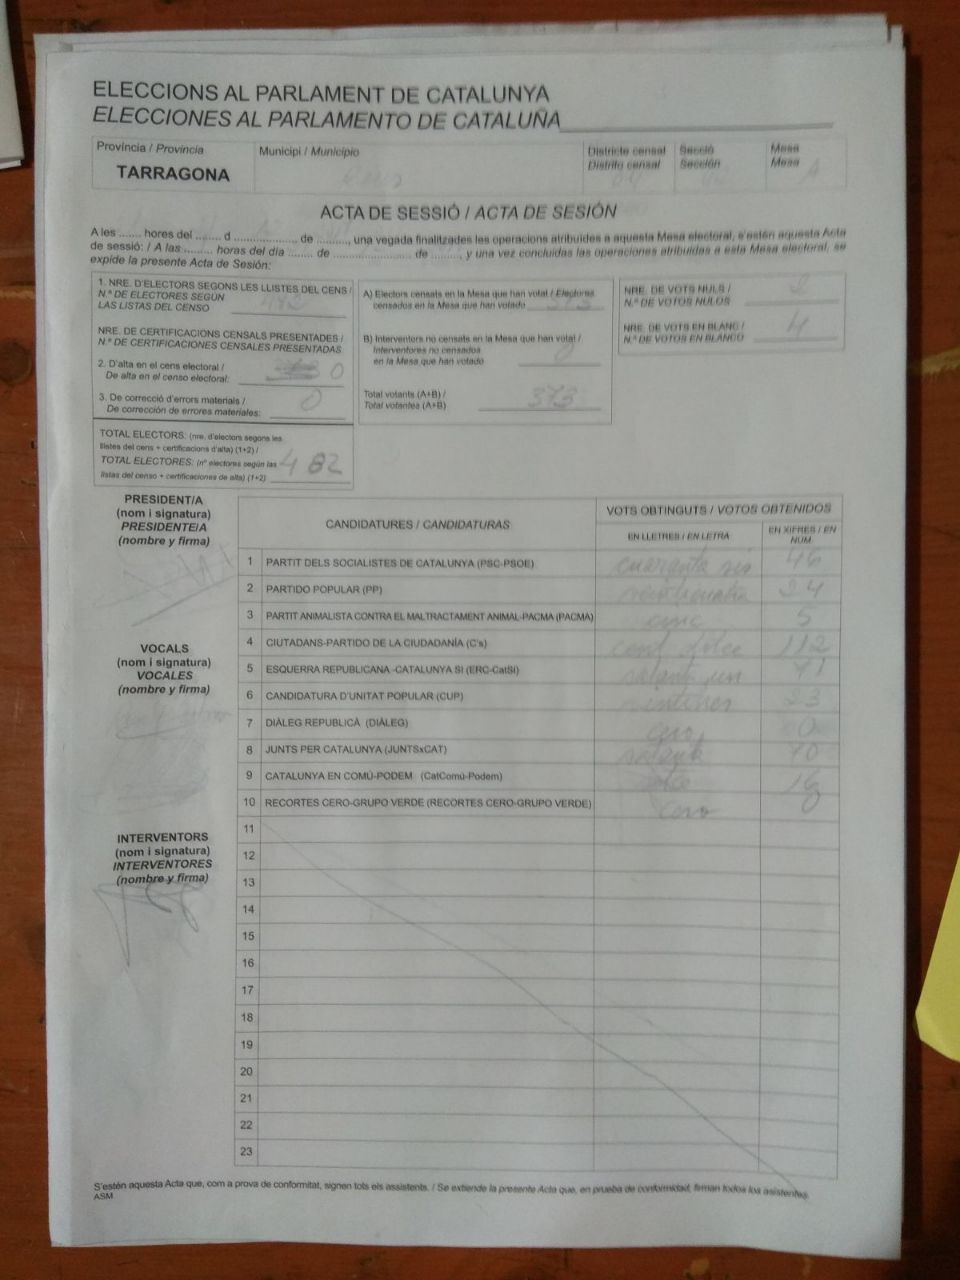 ELECCIONS AL PARLAMENT DE CATALUNYA
ELECCIONES AL PARLAMENTO DE CATALUÑA
Provincia / Provincia
TARRAGONA
Municipi / Municipio
Reus
Districte censal
Distrito censal
Secció
Sección
Mesa
Mesa
A
ACTA DE SESSIÓ / ACTA DE SESIÓN
A les ....... hores del ........ d ................... de .........., una vegada finalitzades les operacions atribuïdes a aquesta Mesa electoral, s'estén aquesta Acta
de sessió: / A las ......... horas del día ........ de ....................... de ........, y una vez concluidas las operaciones atribuidas a esta Mesa electoral, se
expide la presente Acta de Sesión:
1. NRE. D'ELECTORS SEGONS LES LLISTES DEL CENS /
N.º DE ELECTORES SEGÚN
LAS LISTAS DEL CENSO 482
NRE. DE CERTIFICACIONS CENSALS PRESENTADES /
N.º DE CERTIFICACIONES CENSALES PRESENTADAS
2. D'alta en el cens electoral /
De alta en el censo electoral: 0
3. De correcció d'errors materials /
De corrección de errores materiales: 0
TOTAL ELECTORS: (nre. d'electors segons les
llistes del cens + certificacions d'alta) (1+2) /
TOTAL ELECTORES: (nº electores según las
listas del censo + certificaciones de alta) (1+2) 482
A) Electors censats en la Mesa que han votat / Electores
censados en la Mesa que han votado 373
B) Interventors no censats en la Mesa que han votat /
Interventores no censados
en la Mesa que han votado 0
Total votants (A+B) /
Total votantes (A+B) 373
NRE. DE VOTS NULS /
N.º DE VOTOS NULOS 2
NRE. DE VOTS EN BLANC /
N.º DE VOTOS EN BLANCO 4
PRESIDENT/A
(nom i signatura)
PRESIDENTE/A
(nombre y firma)
VOCALS
(nom i signatura)
VOCALES
(nombre y firma)
INTERVENTORS
(nom i signatura)
INTERVENTORES
(nombre y firma)
CANDIDATURES / CANDIDATURAS
VOTS OBTINGUTS / VOTOS OBTENIDOS
EN LLETRES / EN LETRA
EN XIFRES / EN
NUM.
1 PARTIT DELS SOCIALISTES DE CATALUNYA (PSC-PSOE) cuaranta sis 46
2 PARTIDO POPULAR (PP) vintiquatre 24
3 PARTIT ANIMALISTA CONTRA EL MALTRACTAMENT ANIMAL-PACMA (PACMA) cinc 5
4 CIUTADANS-PARTIDO DE LA CIUDADANÍA (C's) cent dotce 112
5 ESQUERRA REPUBLICANA -CATALUNYA SÍ (ERC-CatSí) setanta un 71
6 CANDIDATURA D'UNITAT POPULAR (CUP) vintitres 23
7 DIÀLEG REPUBLICÀ (DIÀLEG) cero 0
8 JUNTS PER CATALUNYA (JUNTSxCAT) setanta 70
9 CATALUNYA EN COMÚ-PODEM (CatComú-Podem)
10 RECORTES CERO-GRUPO VERDE (RECORTES CERO-GRUPO VERDE) cero 0
11
12
13
14
15
16
17
18
19
20
21
22
23
S'estén aquesta Acta que, com a prova de conformitat, signen tots els assistents. / Se extiende la presente Acta que, en prueba de conformidad, firman todos los asistentes.
ASM